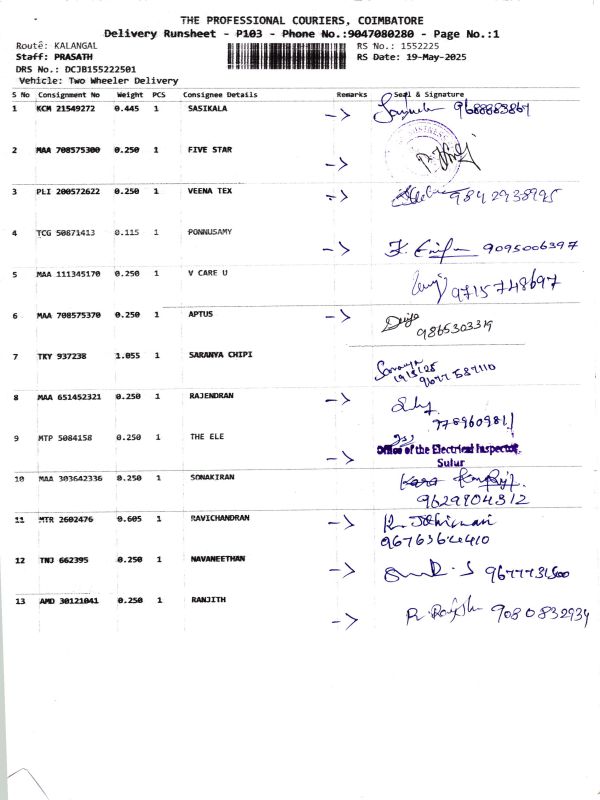 THE PROFESSIONAL COURIERS, COIMBATORE
Delivery Runsheet - P103 - Phone No.:9047080280 - Page No.:1
Route: KALANGAL RS No.: 1552225
Staff: PRASATH RS Date: 19-May-2025
DRS No.: DCJB155222501
Vehicle: Two Wheeler Delivery
S No Consignment No Weight PCS Consignee Details Remarks Seal & Signature
1 KCM 21549272 0.445 1 SASIKALA -> 9688883867
2 MAA 708575300 0.250 1 FIVE STAR ->
3 PLI 200572622 0.250 1 VEENA TEX -> 9842938995
4 TCG 50871413 0.115 1 PONNUSAMY -> 9095006397
5 MAA 111345170 0.250 1 V CARE U 9715748697
6 MAA 708575370 0.250 1 APTUS -> 9865303319
7 TKY 937238 1.055 1 SARANYA CHIPI
9677587110
8 MAA 651452321 0.250 1 RAJENDRAN ->
9 MTP 5084158 0.250 1 THE ELE ->
Office of the Electrical Inspector,
Sulur
10 MAA 303642336 0.250 1 SONAKIRAN
9629904312
11 MTR 2602476 0.605 1 RAVICHANDRAN ->
9676364410
12 TNJ 662395 0.250 1 NAVANEETHAN -> 9677731500
13 AMD 30121041 0.250 1 RANJITH -> 9080832934